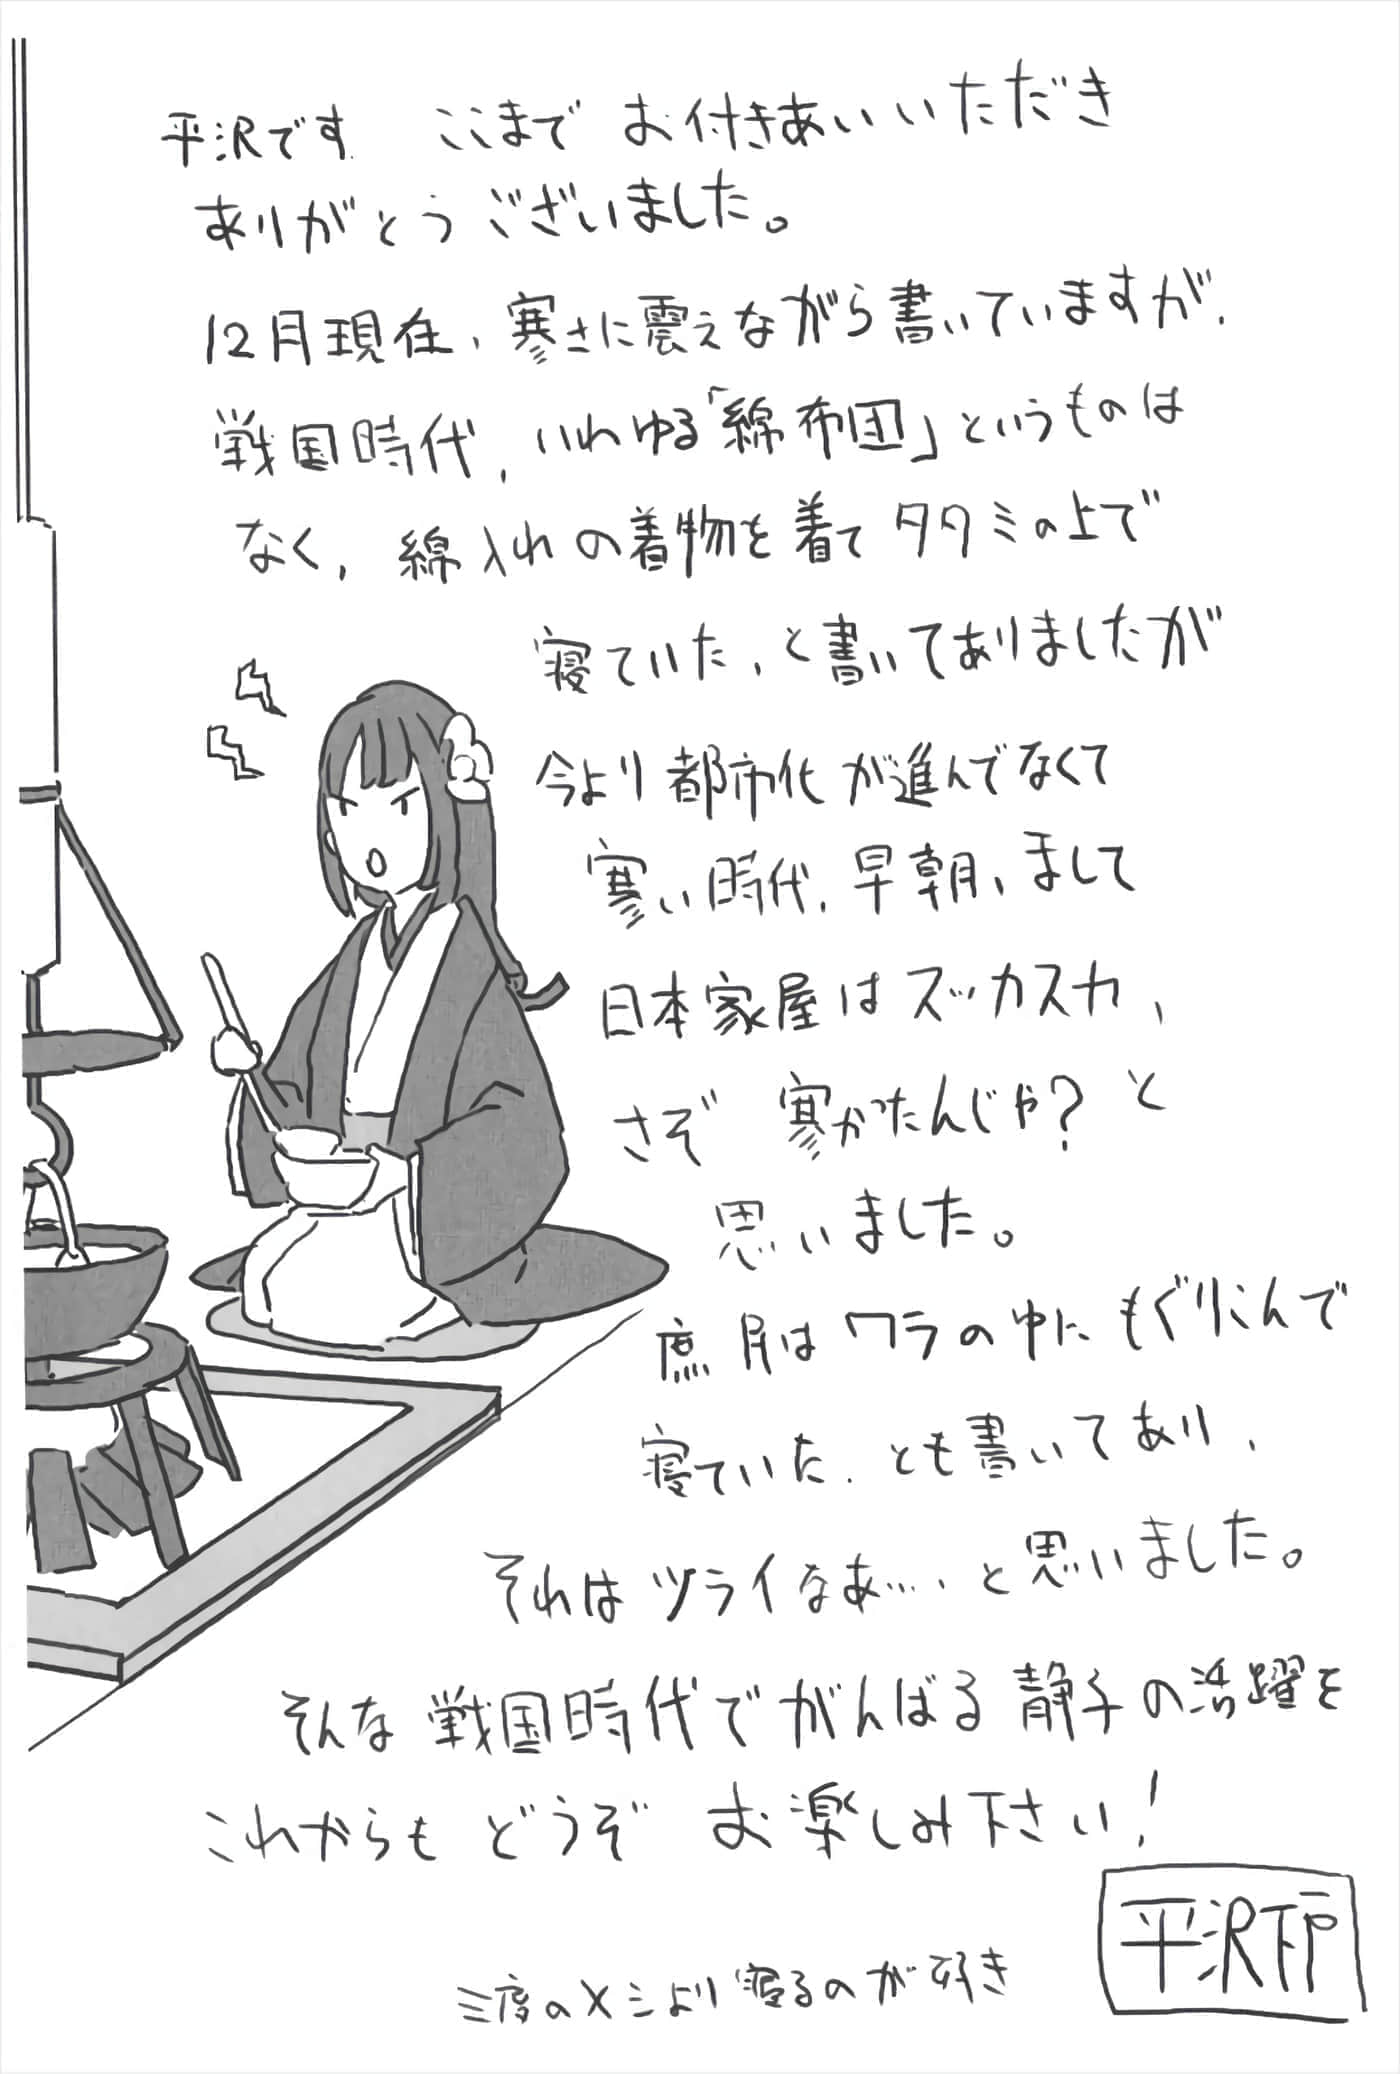 平沢です. ここまで お付きあいいただき
ありがとうございました。
12月現在、寒さに震えながら書いていますが、
戦国時代、いわゆる「綿布団」というものは
なく、綿入れの着物を着てタタミの上で
寝ていた、と書いてありましたが
今より都市化が進んでなくて
寒い時代、早朝、まして
日本家屋はスッカスカ、
さぞ 寒かったんじゃ?と
思いました。
庶民はワラの中にもぐりこんで
寝ていた、とも書いてあり、
それはツライなあ…、と思いました。
そんな戦国時代でがんばる静子の活躍を
これからもどうぞ お楽しみ下さい!
平沢下戸
三度のメシより寝るのが好き